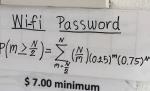 Wifi Password
P(m ≥ N/2) = N∑m=N/2 (N/m)(0.25)^m(0.75)^N
$7.00 minimum